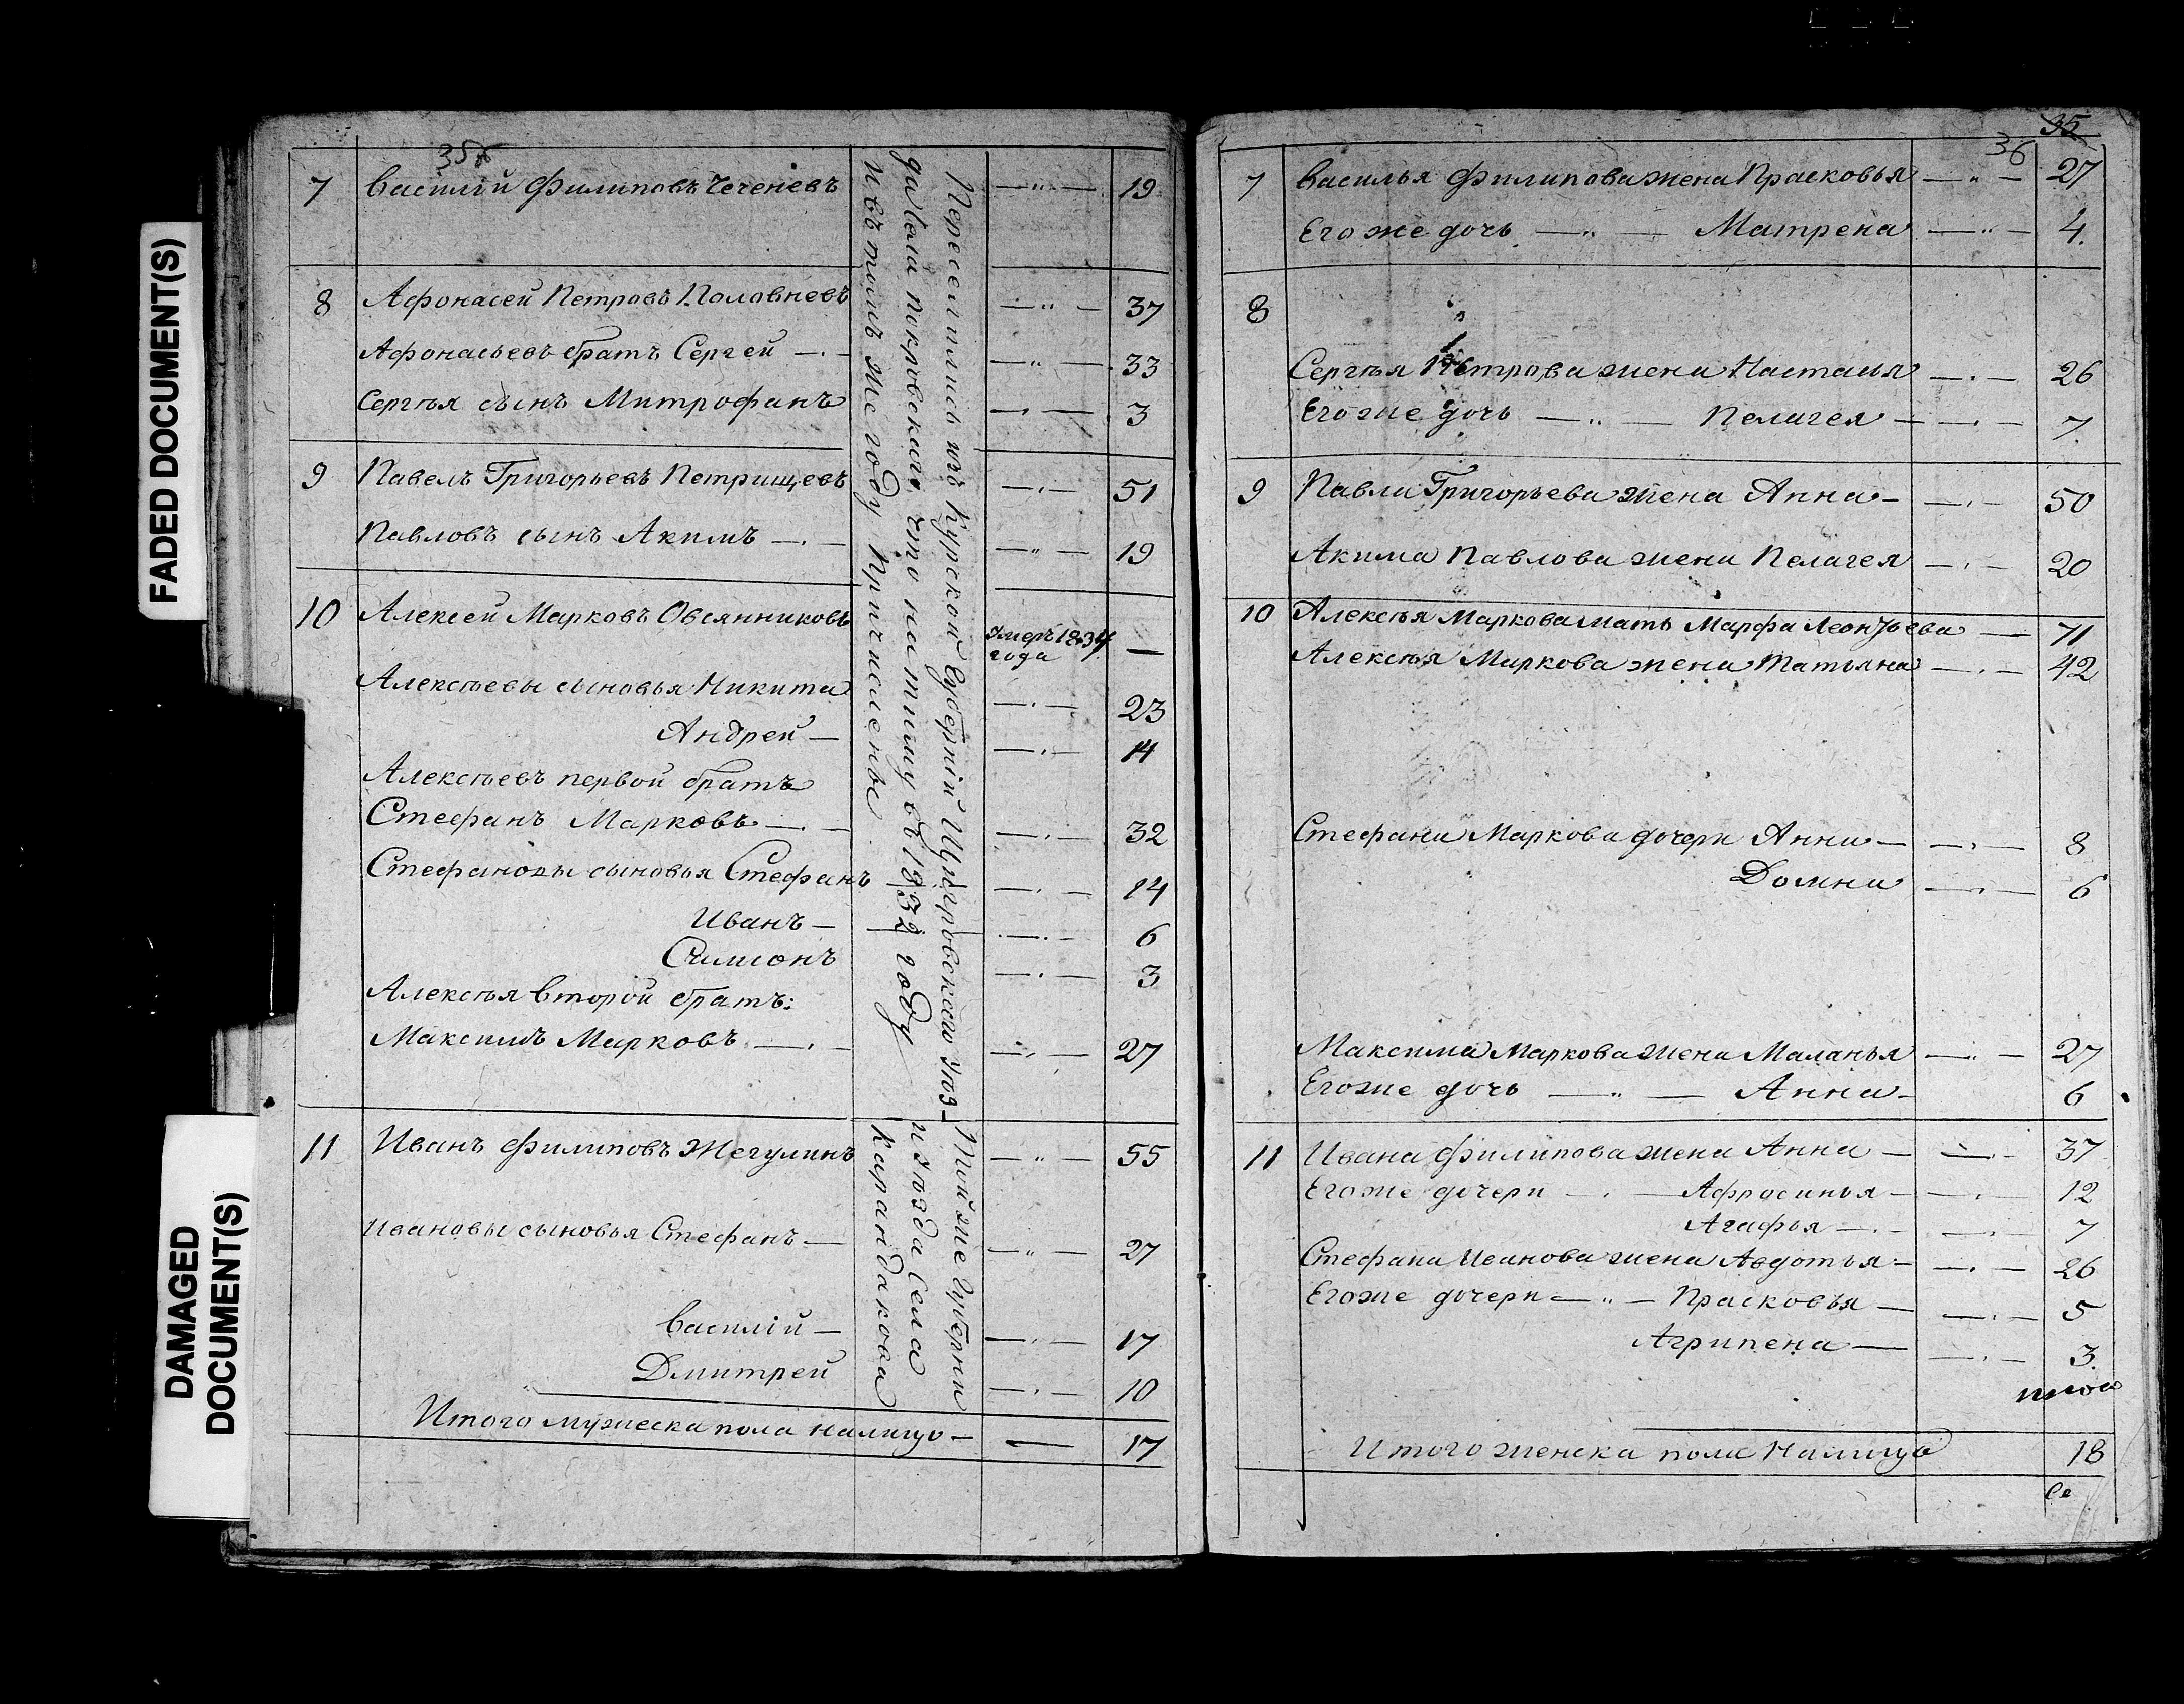 FADED DOCUMENT(S)
DAMAGED
DOCUMENT(S)
35
7 Василій Филиповъ Чеченевъ — " — 19
8 Афонасей Петровъ Половневъ — " — 37
Афонасьевъ братъ Сергей — " — 33
Сергѣя сынъ Митрофанъ — " — 3
9 Павелъ Григорьевъ Петрищевъ — " — 51
Павловъ сынъ Акимъ — " — 19
10 Алексей Марковъ Овсянниковъ умеръ 1834 —
года
Алексѣевы сыновья Никита — " — 23
Андрей — " — 14
Алексѣевъ первой братъ
Стефанъ Марковъ — " — 32
Стефановы сыновья Стефанъ — " — 14
Иванъ — " — 6
Симионъ — " — 3
Алексѣя второй братъ:
Максимъ Марковъ — " — 27
11 Иванъ Филиповъ Жегулинъ — " — 55
Ивановы сыновья Стефанъ — " — 27
Василій — " — 17
Дмитрей — " — 10
Итого мужеска пола налицо — 17
Переселились изъ Курской Губерніи Щигровскаго Уѣз-
да Села Покровскаго что на Тиму въ 1832 году
и въ томъ же году Причислены
Той же Губерніи
и уѣзда Села
Карандакова
35
36
7 Василья Филипова жена Прасковья — " — 27
Его же дочь — " — Матрена — " — 4
8
Сергѣя Петрова жена Настасья — " — 26
Его же дочь — " — Пелагея — " — 7
9 Павла Григорьева жена Анна — " — 50
Акима Павлова жена Пелагея — " — 20
10 Алексѣя Маркова мать Марфа Леонтьева — 71
Алексѣя Маркова жена Татьяна — " — 42
Стефана Маркова дочери Анна — " — 8
Домна — " — 6
Максима Маркова жена Маланья — " — 27
Его же дочь — " — Анна — 6
11 Ивана Филипова жена Анна — " — 37
Его же дочери — Афросинья — " — 12
Агафья — " — 7
Стефана Иванова жена Авдотья — " — 26
Его же дочери — " — Прасковья — " — 5
Агрипена — " — 3
Итого женска пола Налицо 18
Се